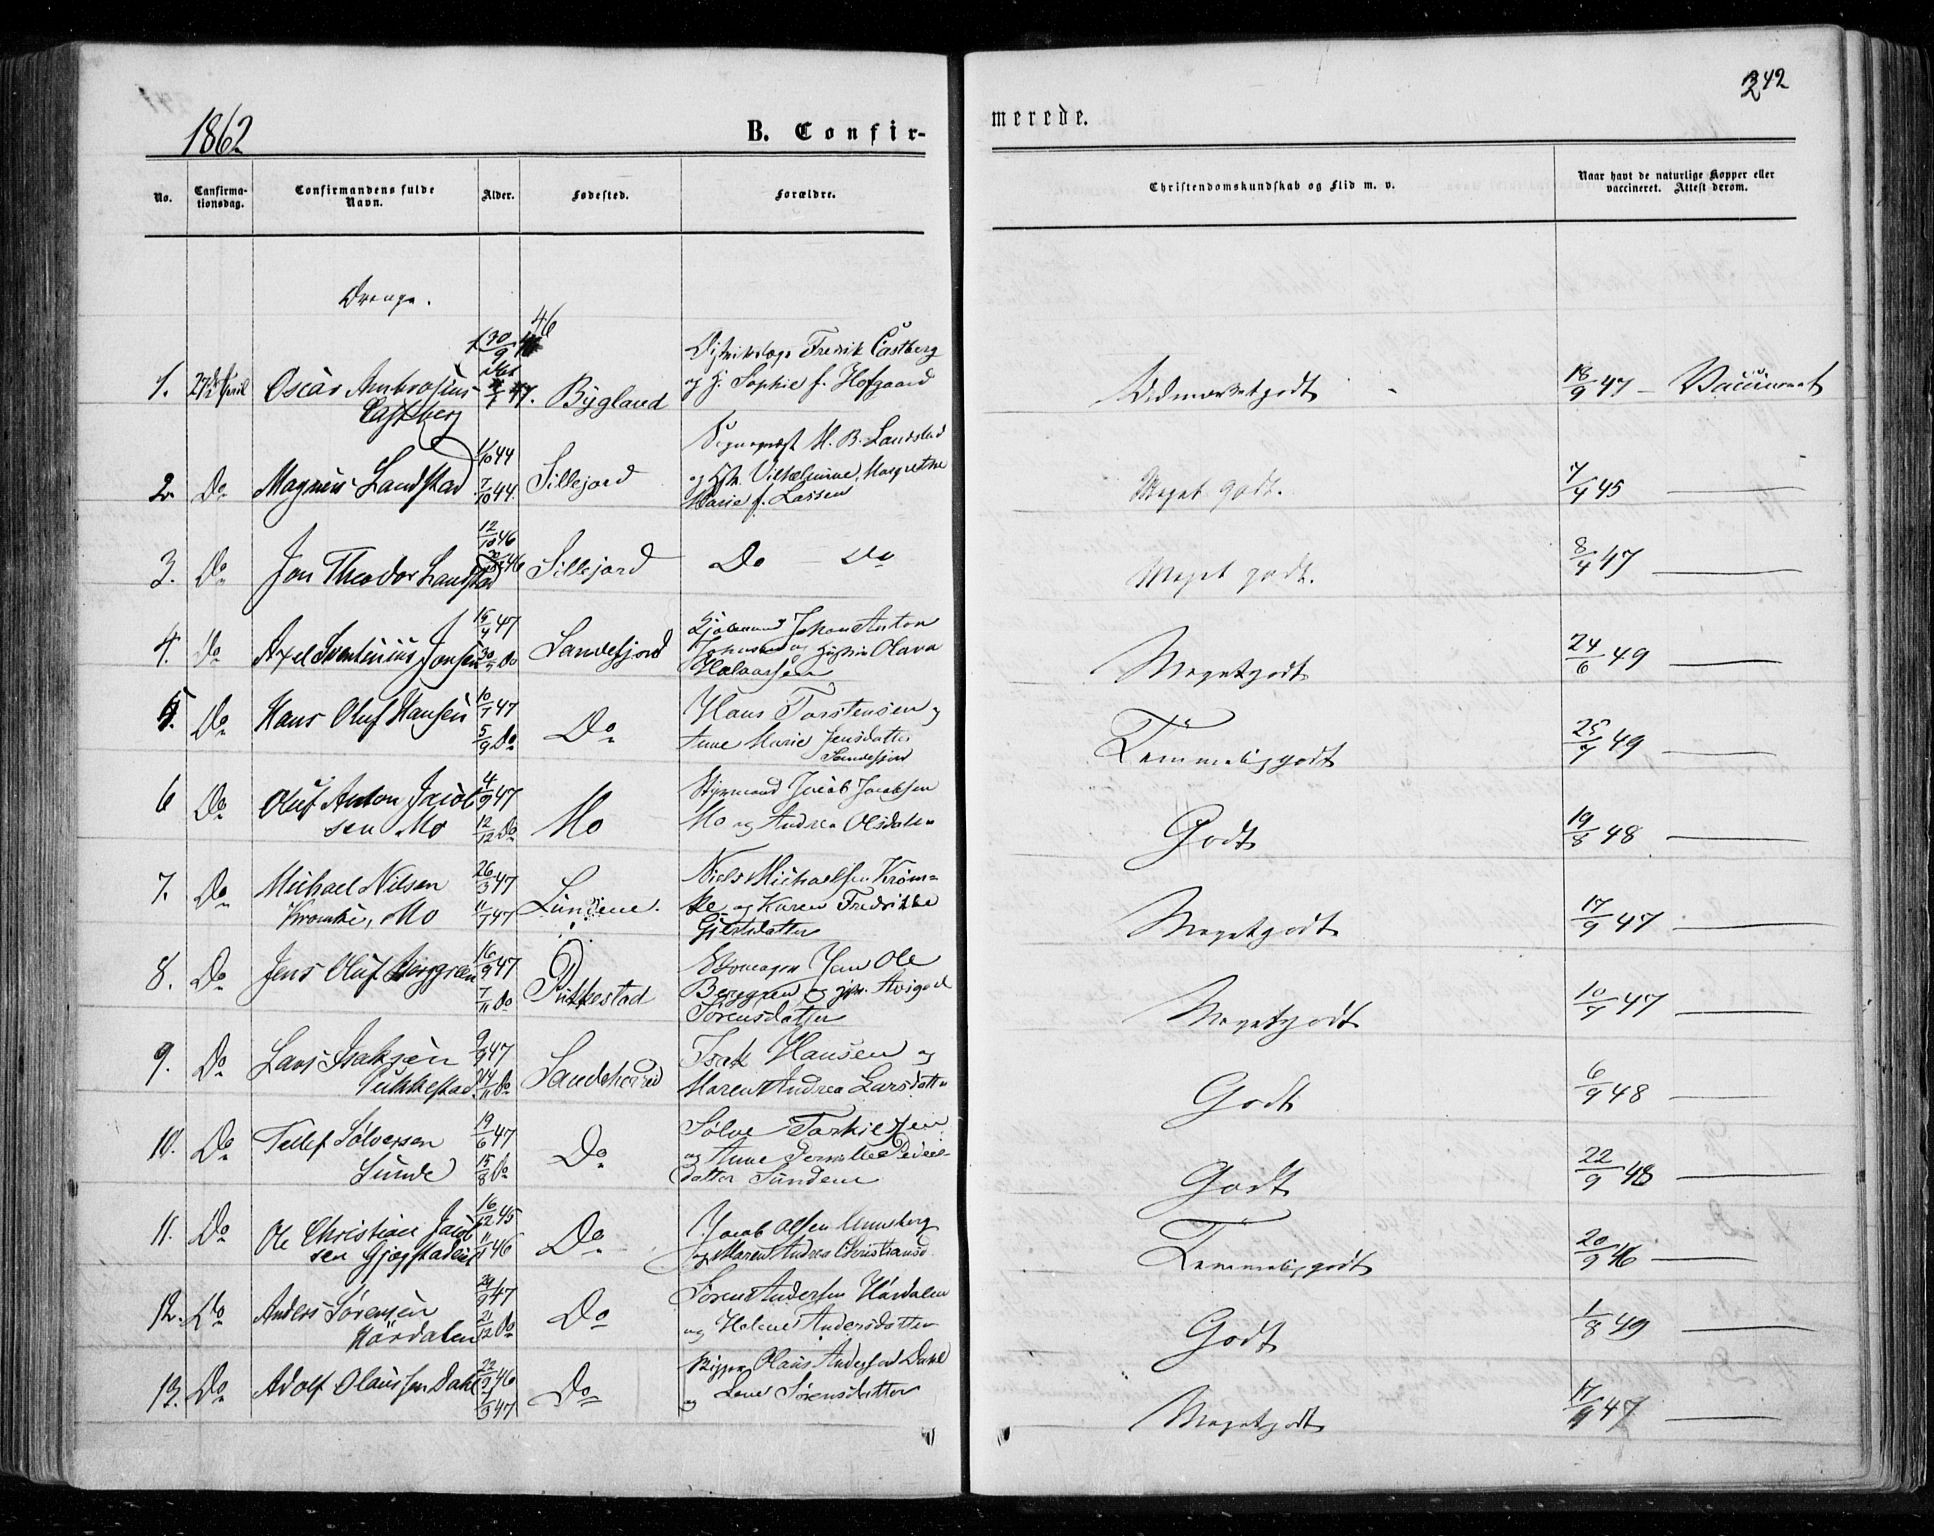 242
1862
B. Confir-
merede.
No.
Confirma-
tionsdag.
Confirmandens fulde
Navn.
Alder.
Fødested.
Forældre.
Christendomskundskab og Flid m. v.
Naar havt de naturlige Kopper eller
vaccineret. Attest derom.
Drenge.
46
30/9
1. 27de April Oscar Ambrosius 47. Bygland
Castberg
Fredrik Castberg
og H. Sophie f. Hofgaard
Udmærketgodt
18/9 47 – Vaccineret
2. Do Magnus Landstad 1/10 44 7/10 44. Sillejord
Sognepræst M. B. Landstad
og Vilhelmine Margrethe
Marie f. Lassen
Meget godt.
7/4 45
3. Do Jon Theodor Landstad 12/10 46 Sillejord Do – Do
Meget godt.
8/4 47
4. Do Axel Jonsen 47 Do Sandefjord
Johan Anton
og Olava
Halvorsen
Megetgodt
24/6 49
5. Do Hans Oluf Hansen 10/7 47 5/9 Do Do
Hans Torstensen og
Anne Marie Jensdatter
Sandefjord
Temmeliggodt
25/7 49
6 Do Oluf Anton Jacob 4/9 47
sen Mo 12/12 Do Mo
Styrmand Jacob Jacobsen
Mo og Andrea Olsdatter
Godt
19/8 48
7. Do Michael Nilsen 26/3 47
Kromke, Mo 47 Lundene.
Niels Michaelsen Krøm-
ke og Karen Fredrikke
Gjertsdatter
Megetgodt
17/9 47
8. Do Jens Oluf Berggren 16/9 47 7/11 Do Pukkestad
Jan Ole
Berggren og
Sørensdatter
Megetgodt
10/7 47
9. Do Lars Isaksen 9/9 47
Pukkestad 14/11 Do Sandeherred
Isak Hansen og
Maren Andrea Larsdatter
Godt
6/9 48
10. Do Tellef Sølvesen 19/6 47
Sunde 15/8 Do Do
Sølve Torkilsen
og Anne Pernille
datter Sundene
Godt
22/9 48
11. Do Ole Christian Jacob 16/12 45
sen 46 Do
Jacob Olsen
og Maren Andrea Christiansd
Temmeliggodt
20/9 46
12. Do Anders Sørensen 29/9 47
Hørdalen 21/12 Do Do
Søren Andersen Hørdalen
og Helene Andersdatter
Godt
1/8 49
13. Do Adolf Olaussen Dahl 22/9 46 1/3 47 Do
Olaus Andersen Dahl
og Lene Sørensdatter
Megetgodt
17/9 47